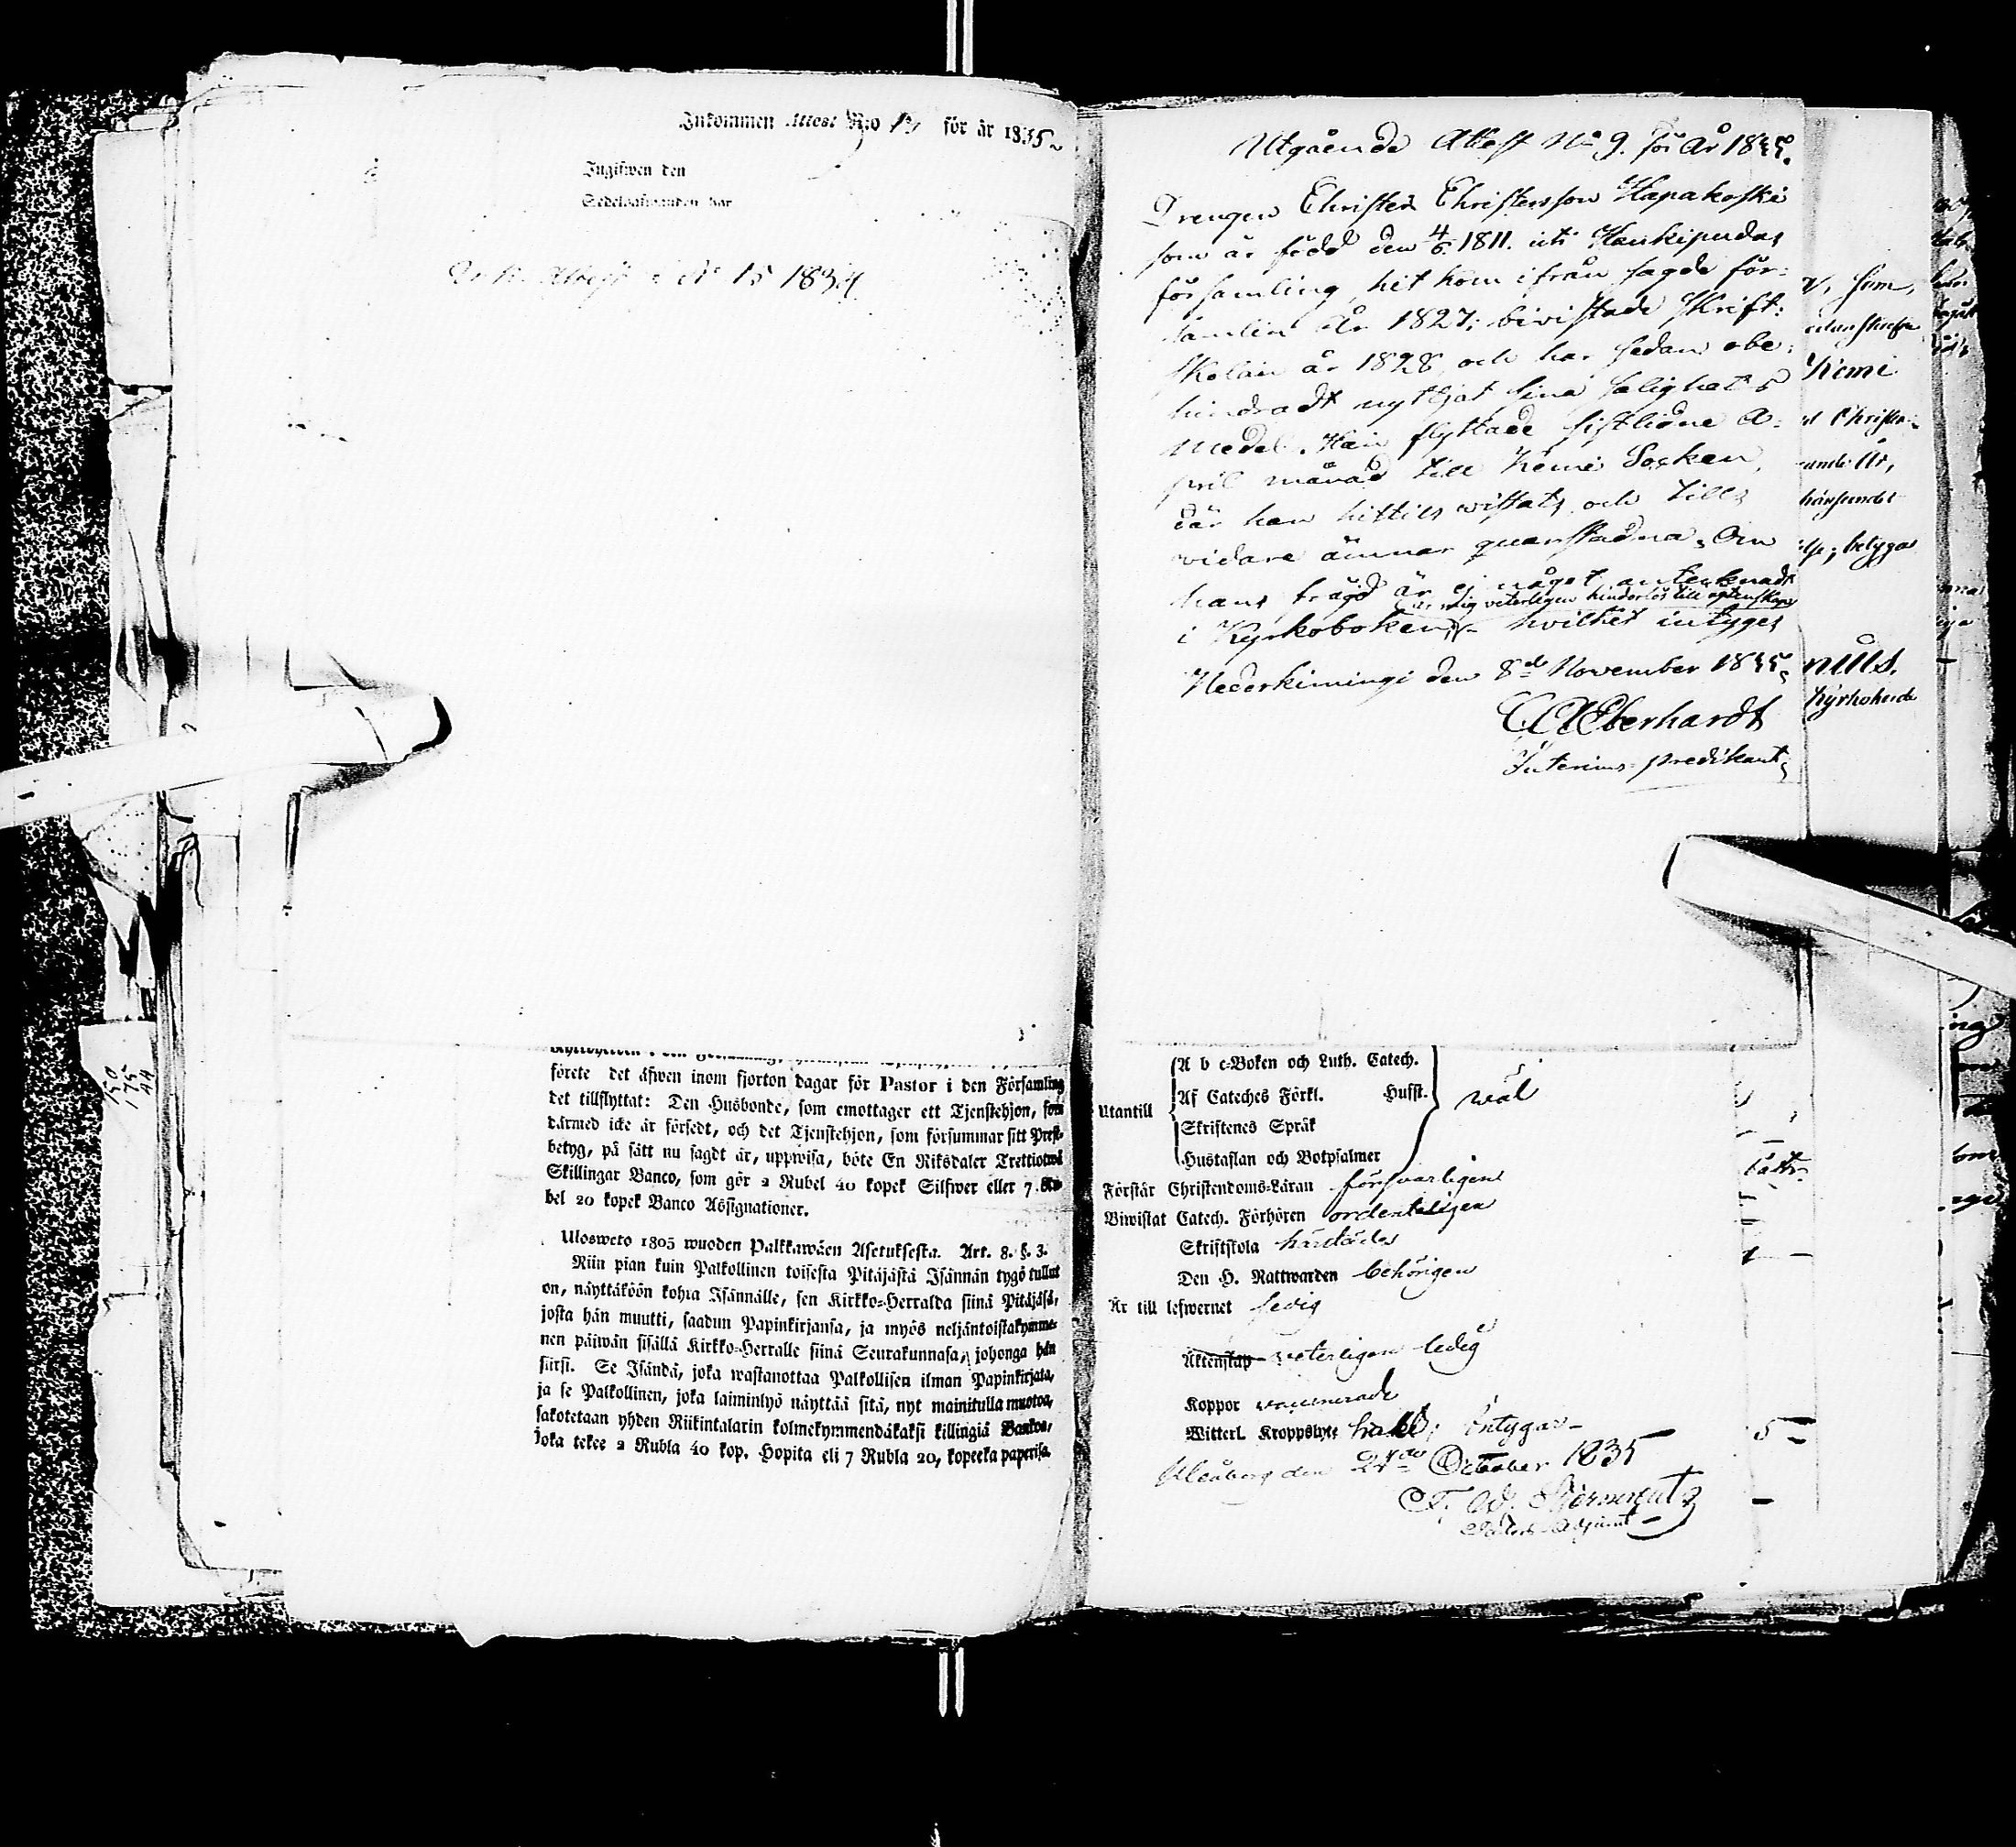 Inkommen Attest N:o för år 1835
Ingifwen den
Sedelaf har
Attest N:o 15 1834
förete det äfwen inom fjorton dagar för Pastor i den Församling
det tillflyttat: Den Husbonde, som emottager ett Tjenstehjon, som
därmed icke är försedt, och det Tjenstehjon, som försummar sitt Prest-
betyg, på sätt nu sagdt är, uppwisa, böte En Riksdaler Trettiotwå
Skillingar Banco, som gör 2 Rubel 40 kopek Silfwer eller 7 Ru-
bel 20 kopek Banco Assignationer.
Ulosweto 1805 wuoden Palkkawäen Asetuksesta. Art. 8. §. 3.
Niin pian kuin Palkollinen toisesta Pitäjästä Isännän tygö tullut
on, näyttäköön kohta Isännälle, sen Kirkko-Herralda siinä Pitäjäsä,
josta hän muutti, saadun Papinkirjansa, ja myös neljäntoistakymme-
nen päiwän sisällä Kirkko-Herralle siinä Seurakunnasa, johonga hän
siirsi. Se Isändä, joka wastanottaa Palkollisen ilman Papinkirjata,
ja se Palkollinen, joka laiminlyö näyttää sitä, nyt mainitulla muotoa,
sakotetaan yhden Riikintalarin kolmekymmendäkaksi killingiä Bankos,
joka tekee 2 Rubla 40 kop. Hopita eli 7 Rubla 20, kopeeka paperisa.
150
175
AA
Utgående Attest No 9. för År 1835.
Drengen Christer Christersson Hapakoski
som är född den 4/6 1811. uti Haukipudas
församling, hit kom ifrån sagde för-
samlin År 1827; bivistade Skrift-
skolan år 1828, och har sedan obe-
hindradt nyttjat sina salighets
medel. Han flyttade sistlidne A-
pril månad till Kemi Socken,
där han hittils wistats och tills
widare ämnar quarstadna. Om
hans frägd är ej något antecknadt
är mig veterligen hinderlös till ägtenskap
i Kyrkoboken; hvilket intyges
Nederkimingi den 8de November 1835.
C A Eberhardt
Interims-predikant.
Utantill
A b c-Boken och Luth. Catech.
Af Cateches Förkl. Husst. wäl
Skriftenes Språk
Hustaflan och Botpsalmer
Förstår Christendoms-Läran försvarligen
Biwistat Catech. Förhören ordenteligen
Skriftskola härstädes
Den H. Nattwarden behörigen
Är till lefwernet sedig
Äktenskap veterligen ledig
Koppor vaccinerade
Witterl. Kroppslyte intygar
Uleåborg den October 1835
5
Kemi
Kyrkoherde